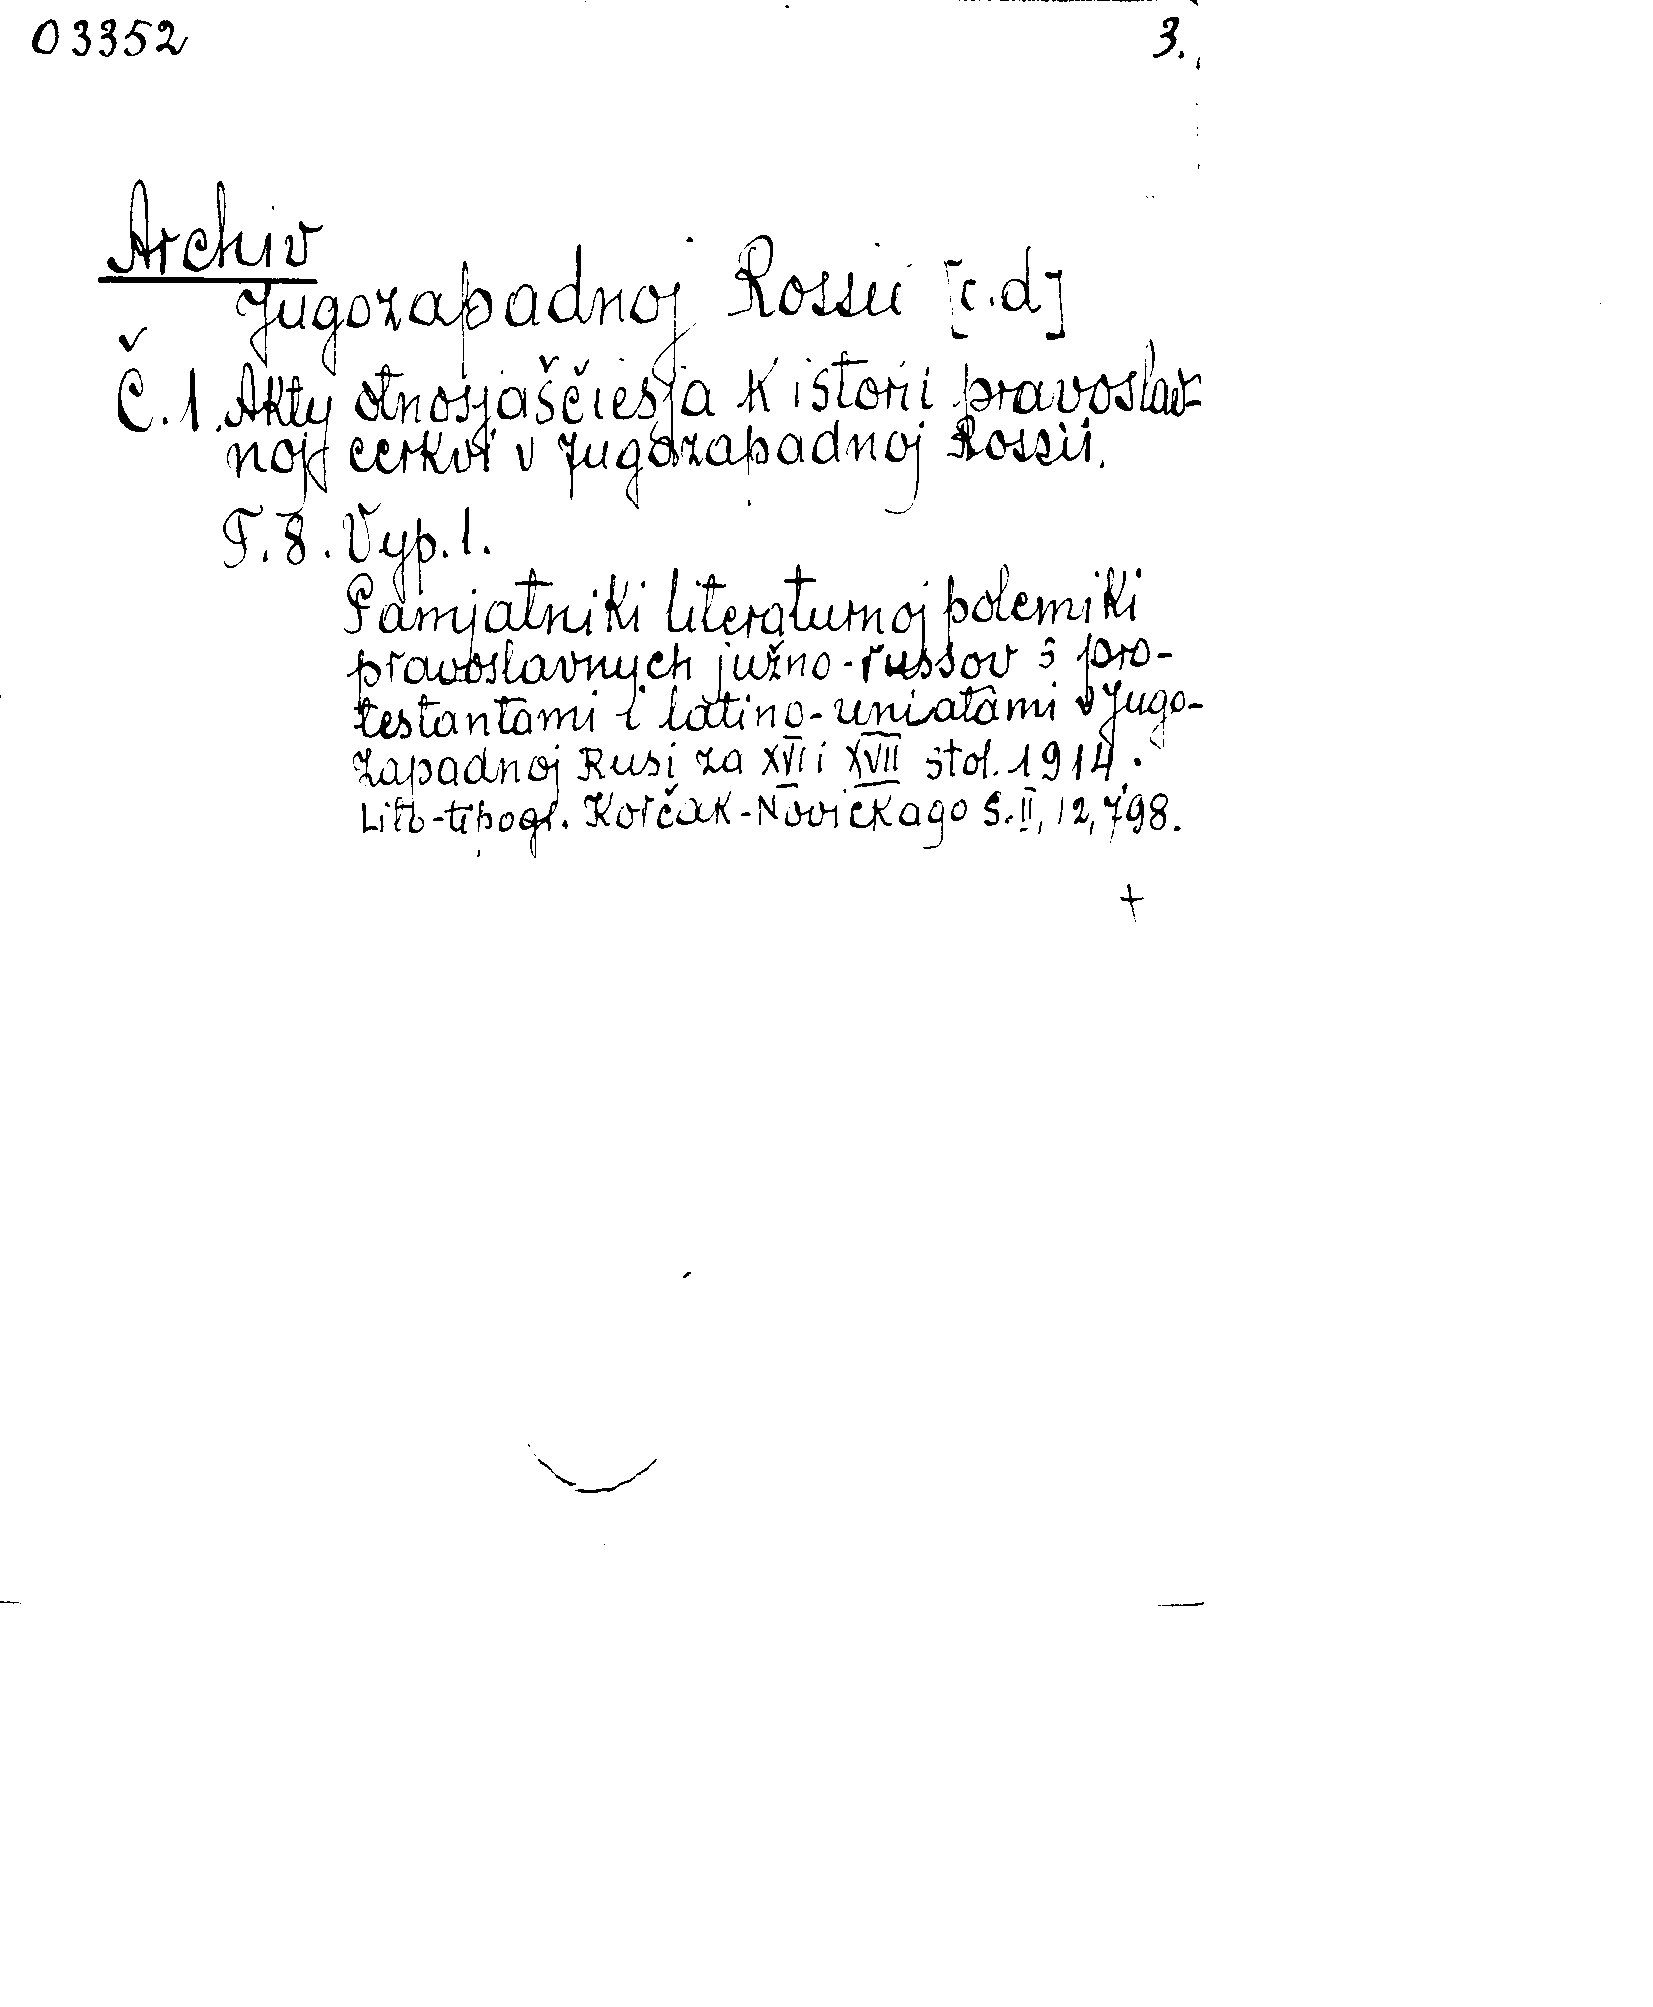 03352 3.
Archiv
Jugozapadnoj Rossii [c.d]
Č. 1. Akty otnosjaščiesja k istorii pravoslav-
noj cerkvi v Jugozapadnoj Rossii.
T. 8. Vyp. 1.
Pamjatniki literaturnoj polemiki
pravoslavnych južno-russov s pro-
testantami i latino-uniatami v Jugo-
zapadnoj Rusi za XVI i XVII stol. 1914.
Lito-tipogr. Korčak-Novickago S. II, 12, 798.
+